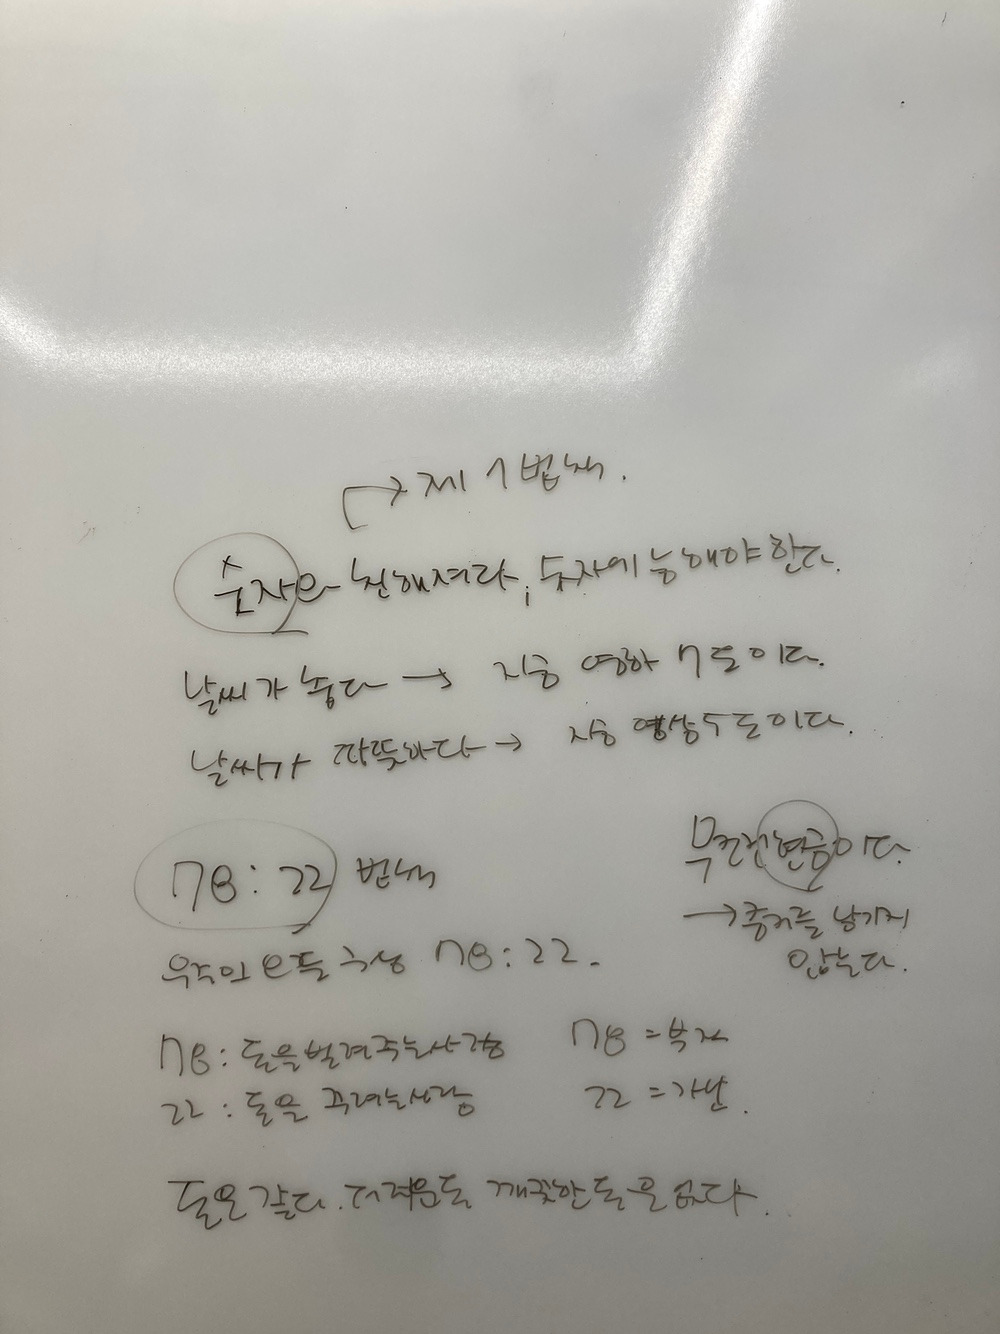 → 제 1 법칙.
숫자와 친해져라, 숫자에 능해야 한다.
날씨가 춥다 → 지금 영하 7도이다.
날씨가 따뜻하다 → 지금 영상 5도이다.
78 : 22 법칙
무조건 현금이다.
→ 증거를 남기지
않는다.
우주의 모든 구성 78 : 22.
78 : 돈을 빌려주는 사람 78 = 부자
22 : 돈을 꾸려는 사람 22 = 가난.
돈은 같다. 더러운 돈 깨끗한 돈은 없다.